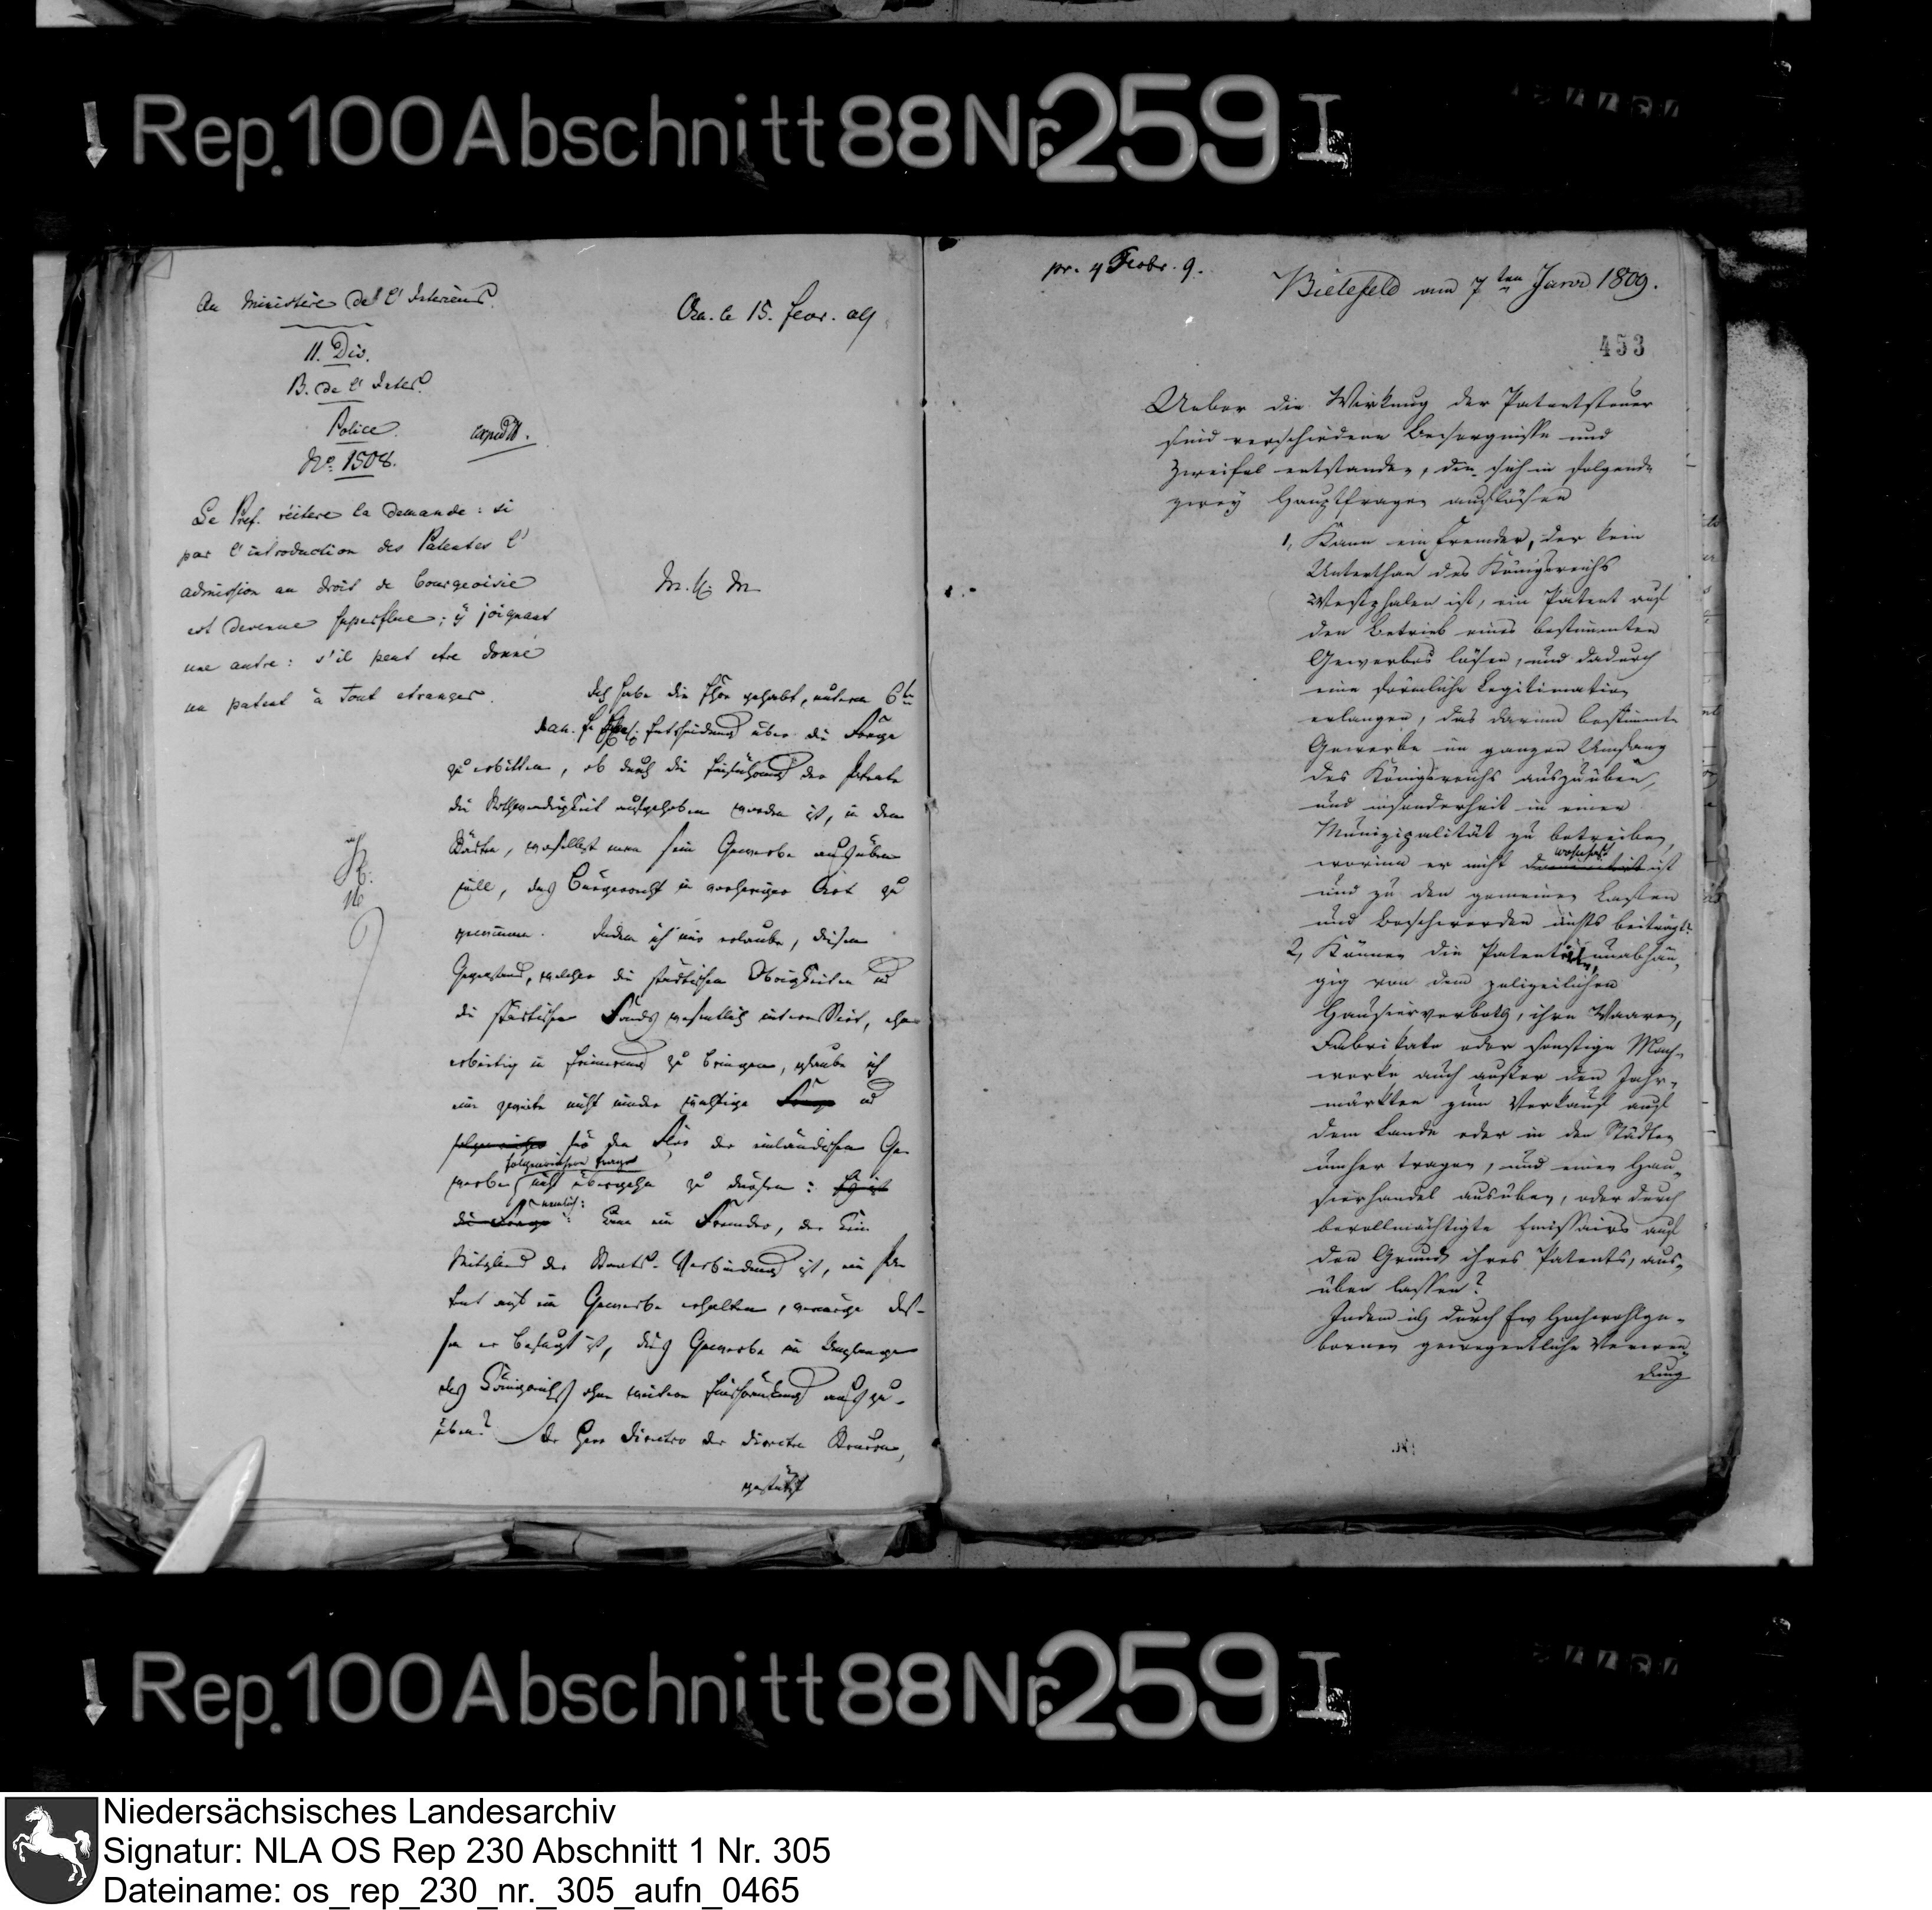 Rep. 100 Abschnitt 88 Nr. 259 I
Au Ministère de l'Interieur.
II. Div.
B. de l'Inter.
Police.
No. 1508.
expedit.
Le Pref. réitere la demande: si
par l'introduction des Patentes l'
admission au droit de bourgeoisie
est devenue superflue; y joignant
une autre: s'il peut etre donné
un patent à Tout etranger.
Osn. le 15. fevr. 09
Ich habe die Ehre gehabt, unterm 6ten
Jan. Entscheidung über die Frage
zu erbitten, ob durch die Einführung der Patente
die Nothwendigkeit aufgehoben worden ist, in dem
Orte, woselbst man sein Gewerbe ausüben
will, das Bürgerrecht in vorheriger Art zu
gewinnen. Indem ich mir erlaube, diesen
Gegenstand, welcher die städtischen Obrigkeiten und
die städtischen Fonds wesentlich interessirt, ehr
erbietig in Erinnerung zu bringen, glaube ich
eine zweite nicht minder wichtige Frage und
für den Flor der inländischen Ge
folgenreiche Frage
werbe nicht übergehn zu dürfen: Es ist
nemlich:
die Frage: Kann ein Fremder, der kein
Mitglied der Staats-Verbindung ist, ein Pa
tent auf ein Gewerbe erhalten, vermöge des-
sen er befugt ist, dies Gewerbe im Umfange
des Königreichs ohne weitere Einschränkung auszu-
üben? Der Herr Director der directen Steuern,
gestützt
pr. 4 Febr. 9.
Bielefeld am 7ten Janr 1809.
453
Ueber die Wirkung der Patentsteuer
sind verschiedene Besorgnisse und
Zweifel entstanden, die sich in folgende
zwey Hauptfragen auflösen
1, Kann ein Fremder, der kein
Unterthan des Königreichs
Westphalen ist, ein Patent auf
den Betrieb eines bestimmten
Gewerbes lösen, und dadurch
eine förmliche Legitimation
erlangen, das darinn bestimmte
Gewerbe im ganzen Umfang
des Königreichs auszuüben,
und insonderheit in einer
Munizipalität zu betreiben,
wohnhaft
worinn er nicht ist
und zu den gemeinen Lasten
und Beschwerden nichts beiträgt?
2, Können die Patentirten, unabhän„
gig von dem polizeilichen
Hausierverboth, ihre Waaren,
Fabrikate oder sonstige Mach„
werke auch außer den Jahr„
märkten zum Verkauf auf
dem Lande oder in den Städten
umher tragen, und einen Hau„
sierhandel ausüben, oder durch
bevollmächtigte Emissairs auf
den Grund ihres Patents, aus„
üben lassen?
Indem ich durch Ew Hochwohlge„
bornen gewogentliche Verwen„
dung
Rep. 100 Abschnitt 88 Nr. 259 I
Niedersächsisches Landesarchiv
Signatur: NLA OS Rep 230 Abschnitt 1 Nr. 305
Dateiname: os_rep_230_nr._305_aufn_0465